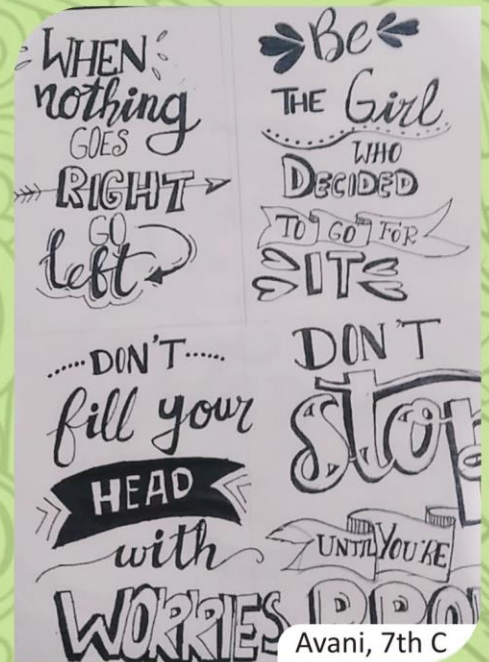 WHEN
nothing
GOES
RIGHT
GO
left
Be
THE Girl
WHO
DECIDED
TO GO FOR
IT
DON'T
fill your
HEAD
with
WORRIES
DON'T
stop
UNTIL YOU'RE
Avani, 7th C